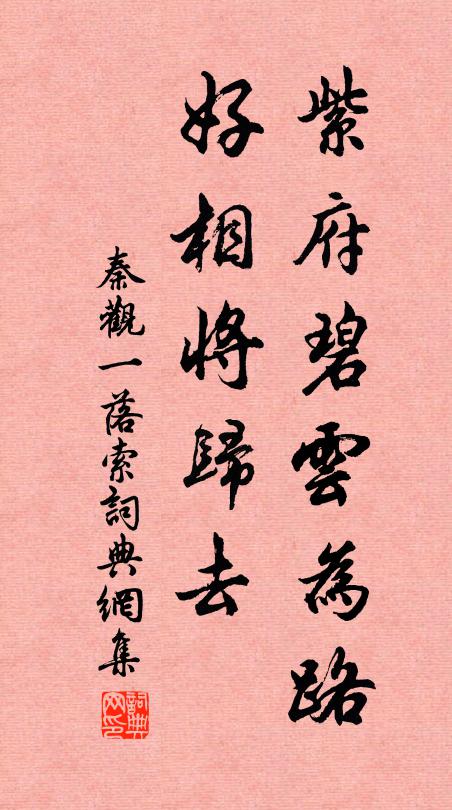 紫府碧雲為路
好相將歸去
秦觀一落索詞典網集
詞典
网印